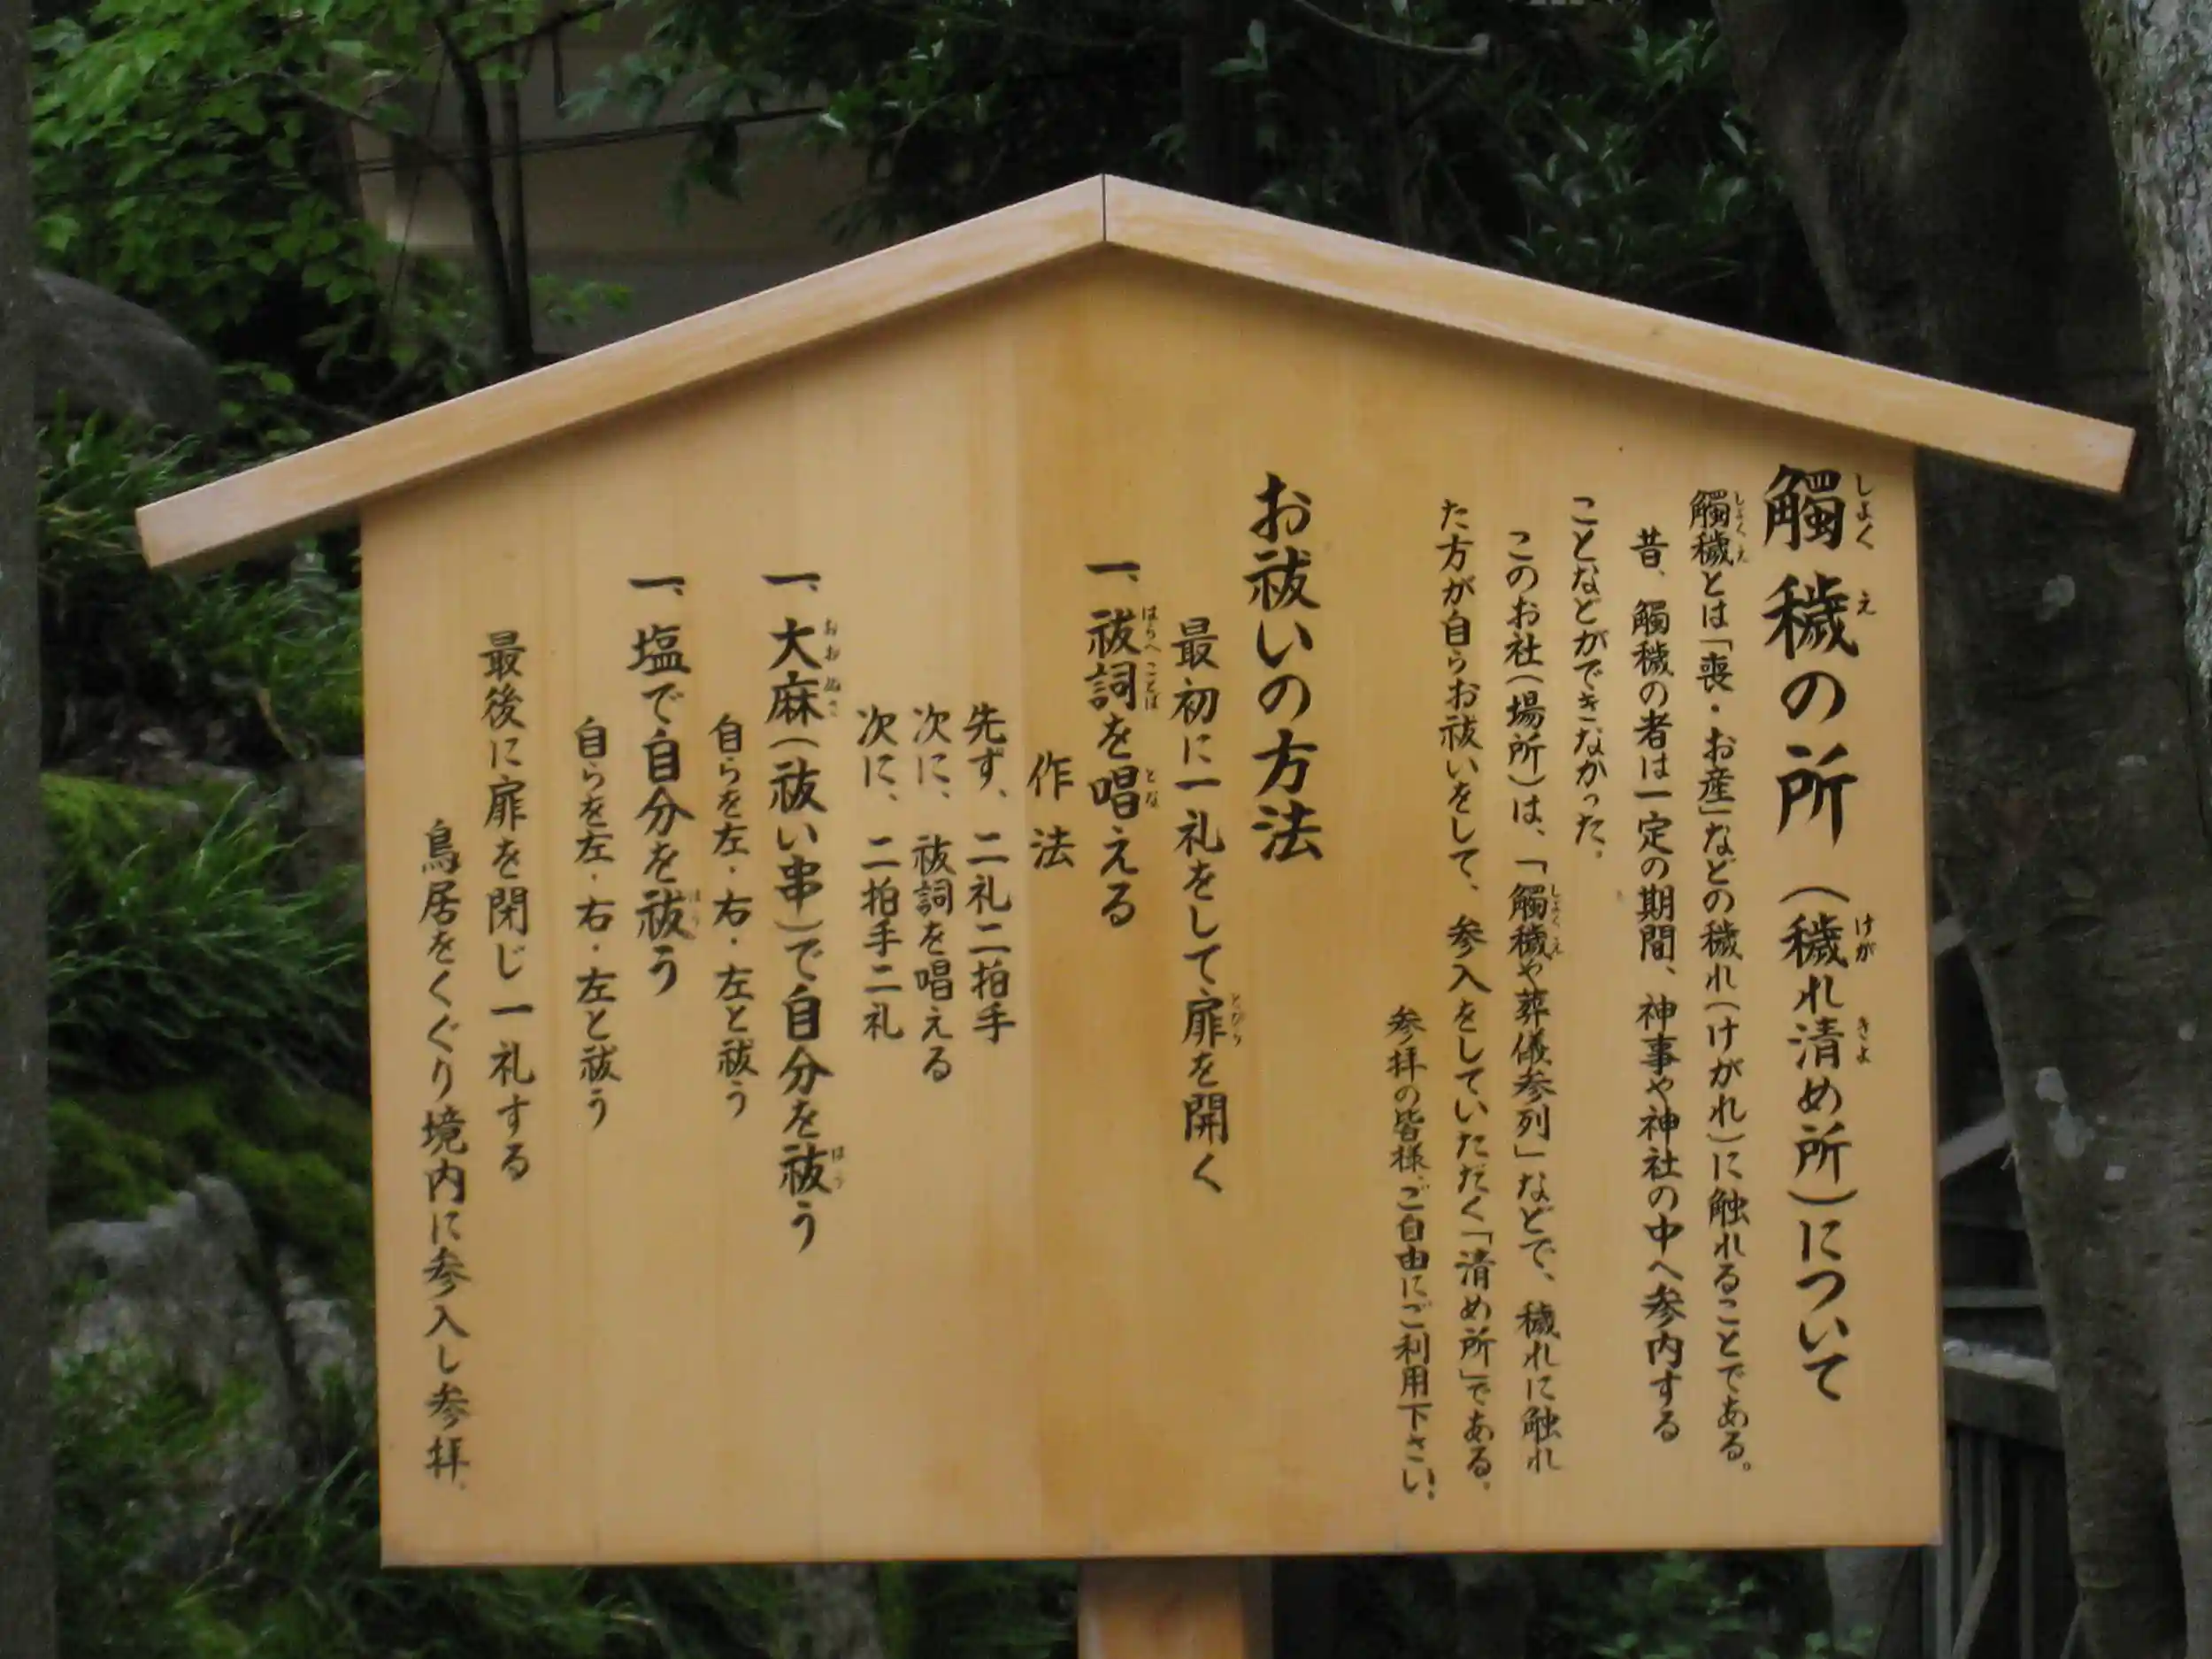 觸穢の所（穢れ清め所）について
觸穢とは「喪・お産」などの穢れ（けがれ）に触れることである。
昔、觸穢の者は一定の期間、神事や神社の中へ参内する
ことなどができなかった。
このお社（場所）は、「觸穢や葬儀参列」などで、穢れに触れ
た方が自らお祓いをして、参入をしていただく「清め所」である。
参拝の皆様、ご自由にご利用下さい！
お祓いの方法
最初に一礼をして扉を開く
一、祓詞を唱える
作法
先ず、二礼二拍手
次に、祓詞を唱える
次に、二拍手二礼
一、大麻（祓い串）で自分を祓う
自らを左・右・左と祓う
一、塩で自分を祓う
自らを左・右・左と祓う
最後に扉を閉じ一礼する
鳥居をくぐり境内に参入し参拝。